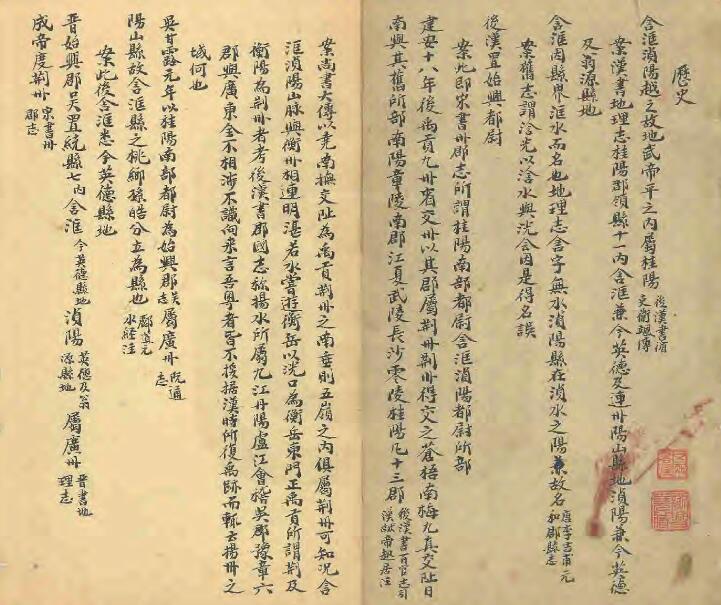 歷史
含洭湞陽越之故地武帝平之內屬桂陽後漢書循
吏衛颯傳
案漢書地理志桂陽郡領縣十一內含洭兼今英德及連州陽山縣地湞陽兼今英德
及翁源縣地
含洭因縣界洭水而名也地理志含字無水湞陽縣在湞水之陽兼故名唐李吉甫元
和郡縣志
案舊志謂浛光以浛水與洸會因是得名誤
後漢置始興都尉
案此即宋書州郡志所謂桂陽南部都尉含洭湞陽都尉所部
建安十八年復禹貢九州省交州以其郡屬荊州荊州得交之蒼梧南海九真交阯日
南與其舊所部南陽章陵南郡江夏武陵長沙零陵桂陽凡十三郡後漢書百官志引
漢獻帝起居注
案尚書大傳以堯南撫交阯為禹貢荊州之南垂則五嶺之內俱屬荊州可知況含
洭湞陽山脈與衡州相連明湛若水嘗遊衡岳以洸口為衡岳東門正禹貢所謂荊及
衡陽為荊州者考後漢書郡國志於揚州所屬九江丹陽廬江會稽吳郡豫章六
郡與廣東全不相涉不識向來言吾粵者皆不援據漢時所復禹跡而輒云揚州之
域何也
吳甘露元年以桂陽南部都尉為始興郡吳志屬廣州阮通
志
陽山縣故含洭縣之桃鄉孫皓分立為縣也酈道元
水經注
案此後含洭悉今英德縣地
晉始興郡吳置統縣七內含洭今英德縣地湞陽英德及翁
源縣地屬廣州晉書地
理志
成帝度荊州宋書州
郡志